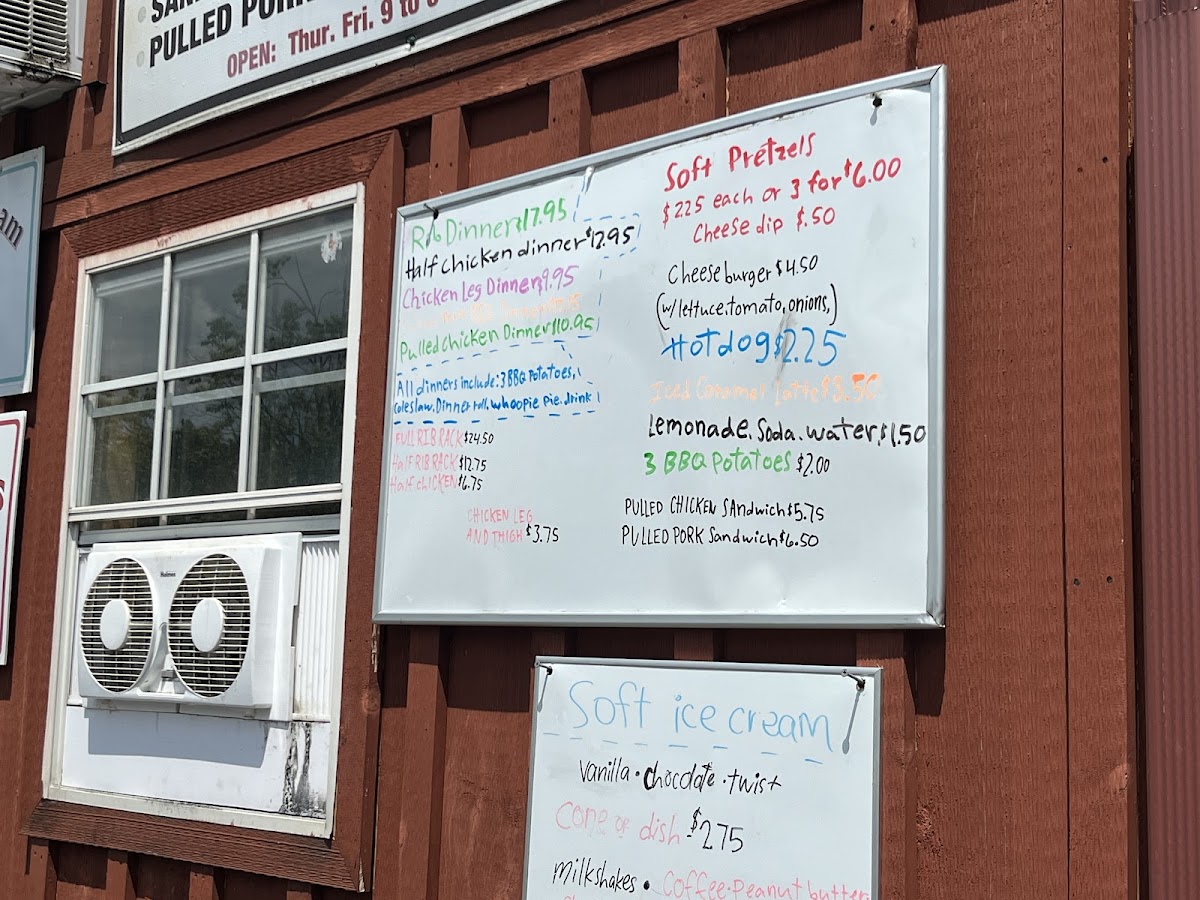 PULLED PORK
OPEN: Thur. Fri. 9 to
am
S
Rib Dinner $17.95
Half chicken dinner $12.95
Chicken Leg Dinner $9.95
Pulled Chicken Dinner $10.95
All dinners include: 3 BBQ Potatoes,
Coleslaw. Dinner roll. whoopie Pie. drink
FULL RIB RACK $24.50
Half RIB RACK $12.75
Half chicken $6.75
CHICKEN LEG
AND THIGH $3.75
Soft Pretzels
$2.25 each or 3 for $6.00
Cheese dip $.50
Cheeseburger $4.50
(w/ lettuce. tomato, onions,)
Hotdog $2.25
Iced Caramel Latte $3.50
Lemonade. Soda. water. $1.50
3 BBQ Potatoes $2.00
PULLED CHICKEN SAndwich $5.75
PULLED PORK Sandwich $6.50
Soft ice cream
Vanilla • chocolate • twist
Cone or dish $2.75
Milkshakes • Coffee • Peanut butter